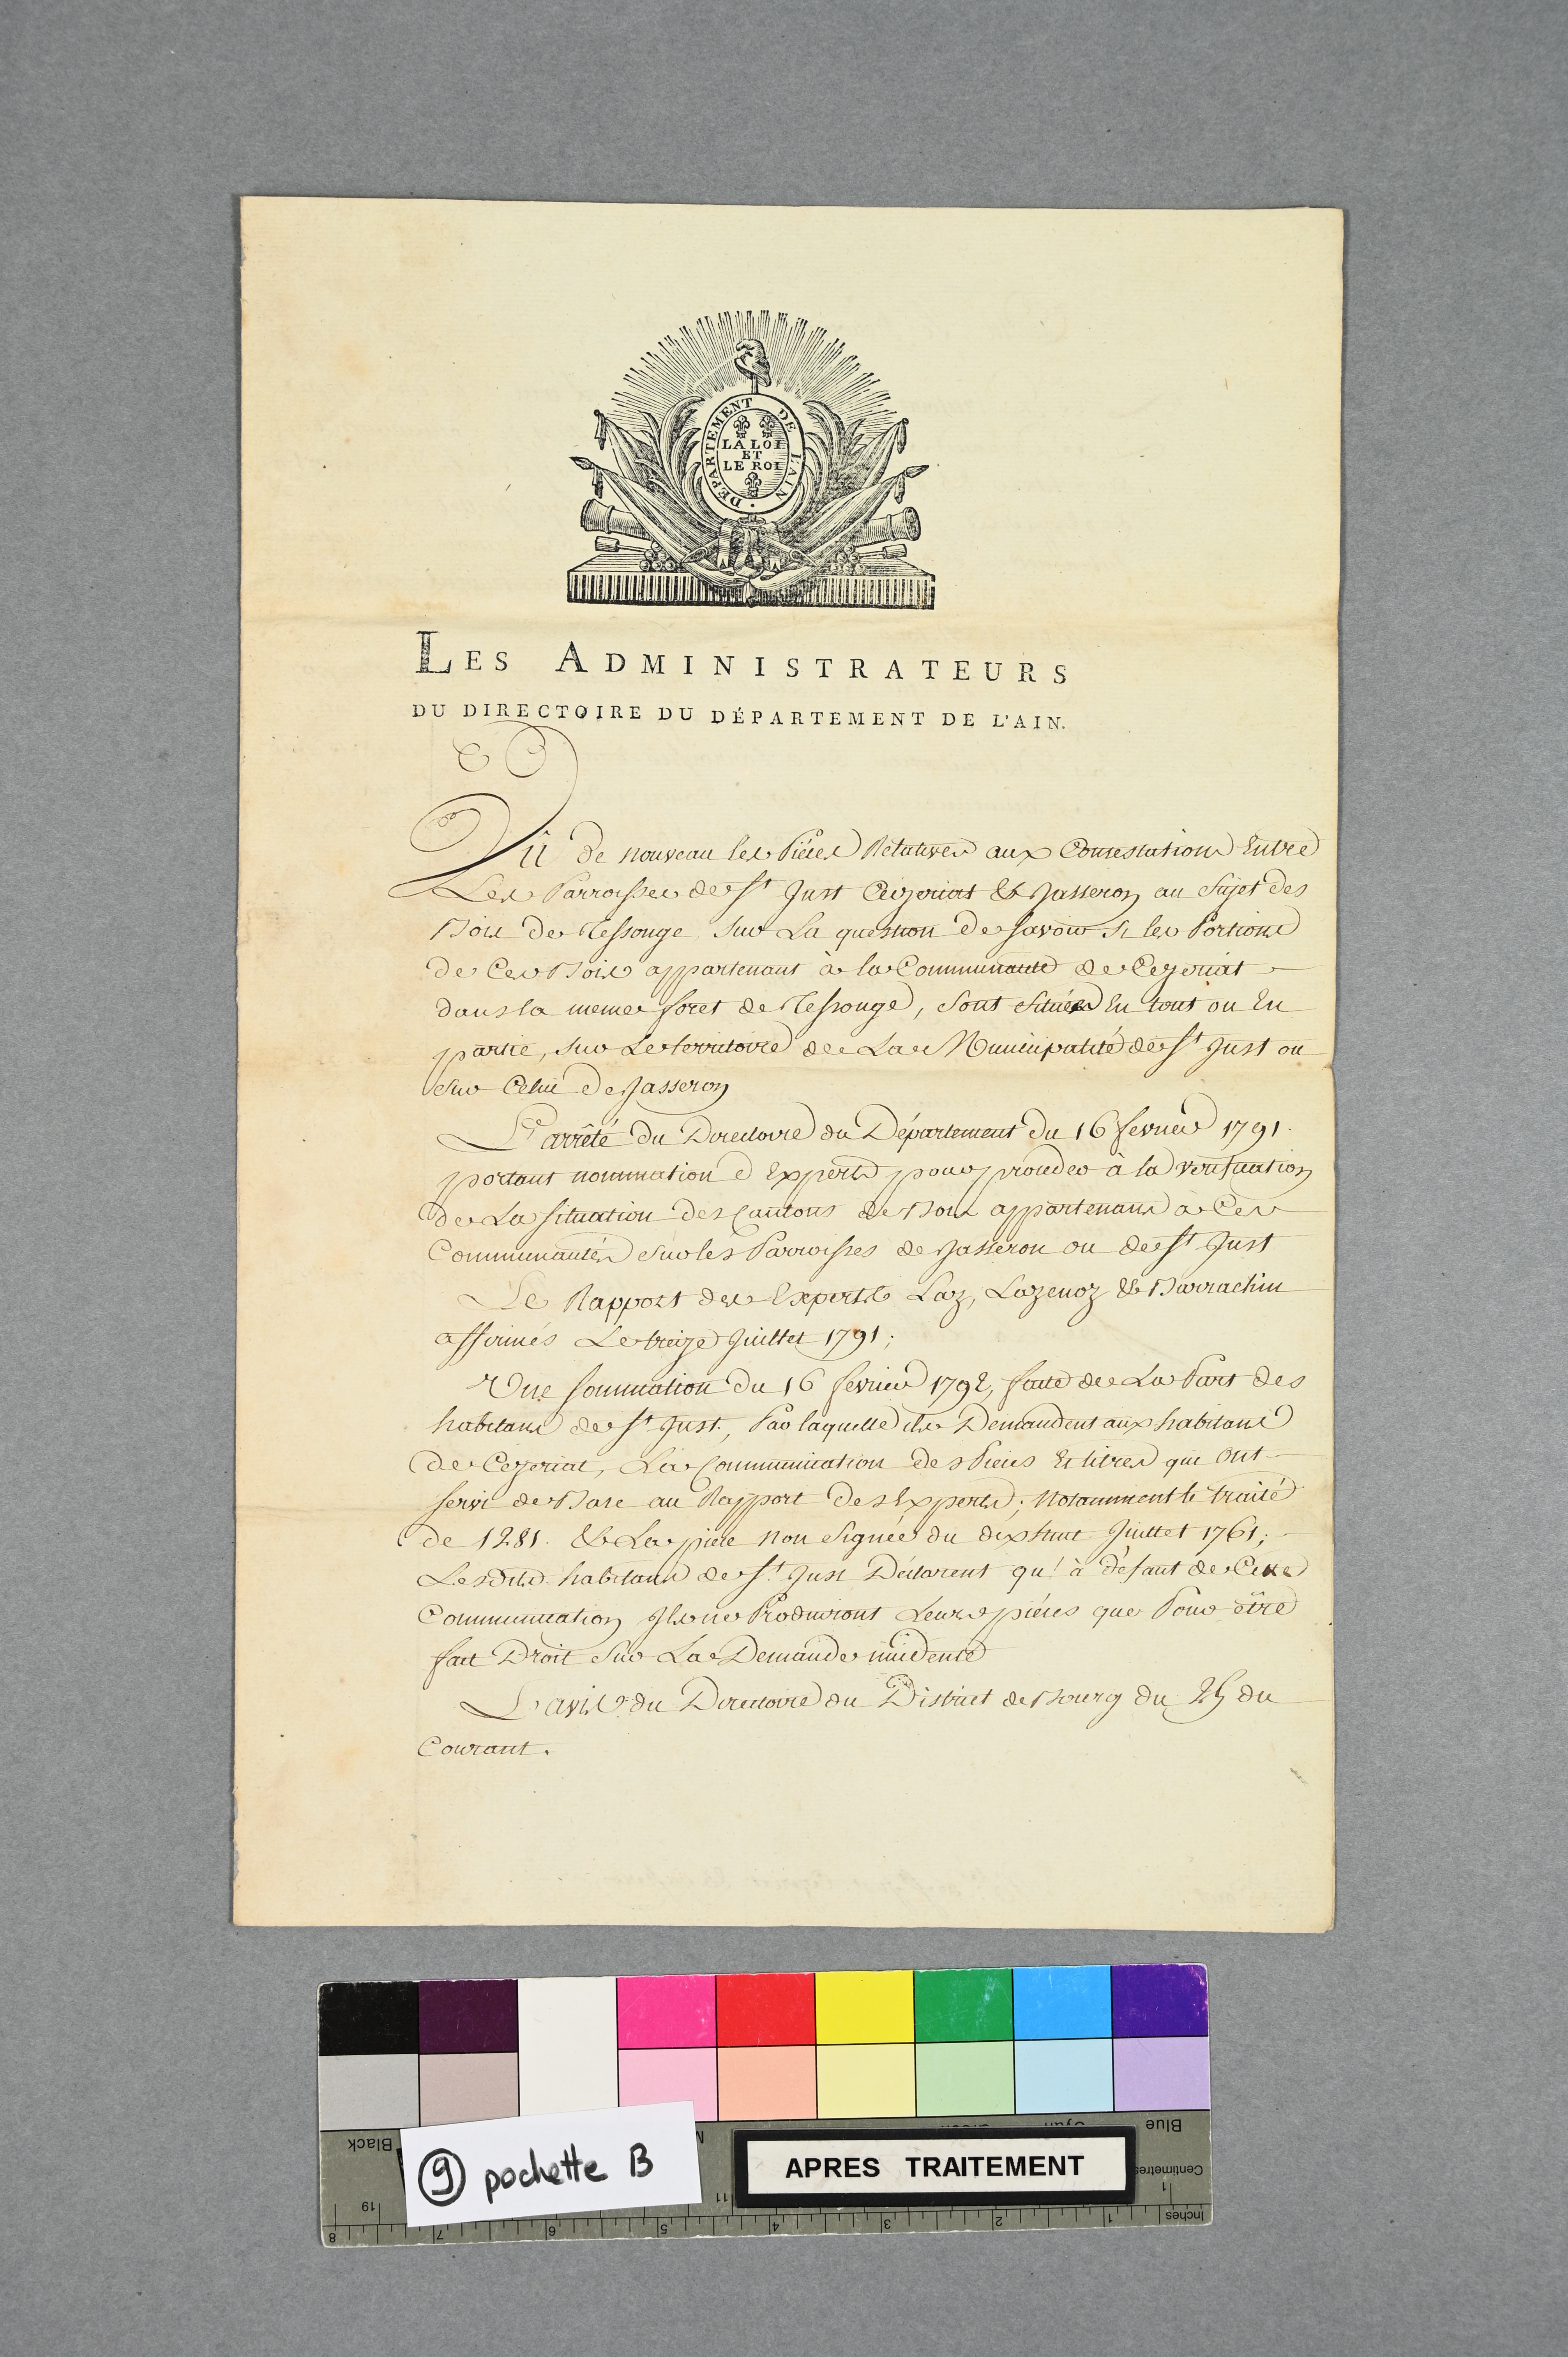 DEPARTEMENT DE L'AIN
LA LOI
ET
LE ROI
LES ADMINISTRATEURS
DU DIRECTOIRE DU DÉPARTEMENT DE L'AIN.
Vû de nouveau les Piéces Relatives aux Contestations Entre
Les Parroisses de St Just Ceyzeriat & Jasseron au Sujet des
Bois de Tessonge Sur La question de savoir Si les Portions
de Ces Bois appartenant à la Communauté de Ceyzeriat
dans la meme foret de Tessonge, Sont Situées En tout ou En
partie, Sur Le territoire de La Municipalité de St Just ou
Sur Celui de Jasseron
L'arrêté du Directoire du Département du 16 fevrier 1791.
portant nomination d'Experts pour proceder à la verification
de La Situation des Cantons de Bois appartenans à Ces
Communautés Sur les Parroisses de Jasseron ou de St Just
Le Rapport des Experts Laz, Lazenoz & Barrachin
affirmés Le treize Juillet 1791;
Une Sommation du 16 fevrier 1792, faite de La Part des
habitans de St Just, Par laquelle ils Demandent aux habitans
de Ceyzeriat, La Communication des Pieces Et titres qui Ont
servi de Base au Rapport des Experts; Notamment le traité
de 1281. & La piéce Non Signée du dix huit Juillet 1761;
Lesdits habitans de St Just Déclarent qu'à défaut de Cette
Communication Ils ne Produiront Leurs piéces que Pour être
fait Droit Sur La Demande incidente
L'avis du Directoire du District de Bourg du 25 du
Courant.
Black
Blue
Centimetres
Inches
9 pochette B
APRES TRAITEMENT